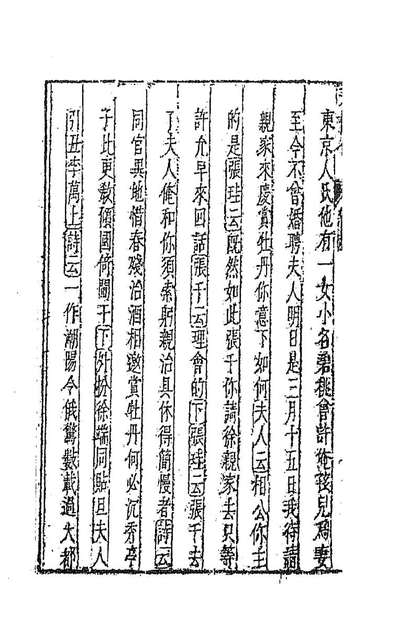 東京人氏他有一女小名碧桃曾許俺孩兒爲妻
至今不曾婚聘夫人明日是三月十五日我待請
親家來慶賞牡丹你意下如何夫人云相公你主
的是張珪云既然如此張千你請徐親家去只等
許允早來回話張千云理會的下張珪云張千去
了夫人俺和你須索躬親治具休得簡慢者詩云
同官異地惜春殘治酒相邀賞牡丹何必沉香亭
子北更教傾國倚闌干下外扮徐端同貼旦夫人
引丑李萬上詩云一作潮陽令俄驚數載過大都